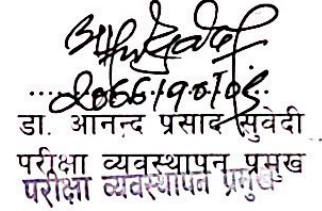 २०६६।१०।०५
डा. आनन्द प्रसाद सुवेदी
परीक्षा व्यवस्थापन प्रमुख
परीक्षा व्यवस्थापन प्रमुख